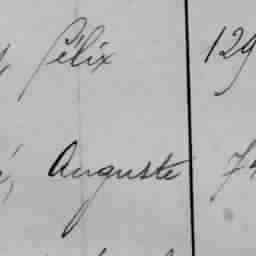 Félix 129
Auguste